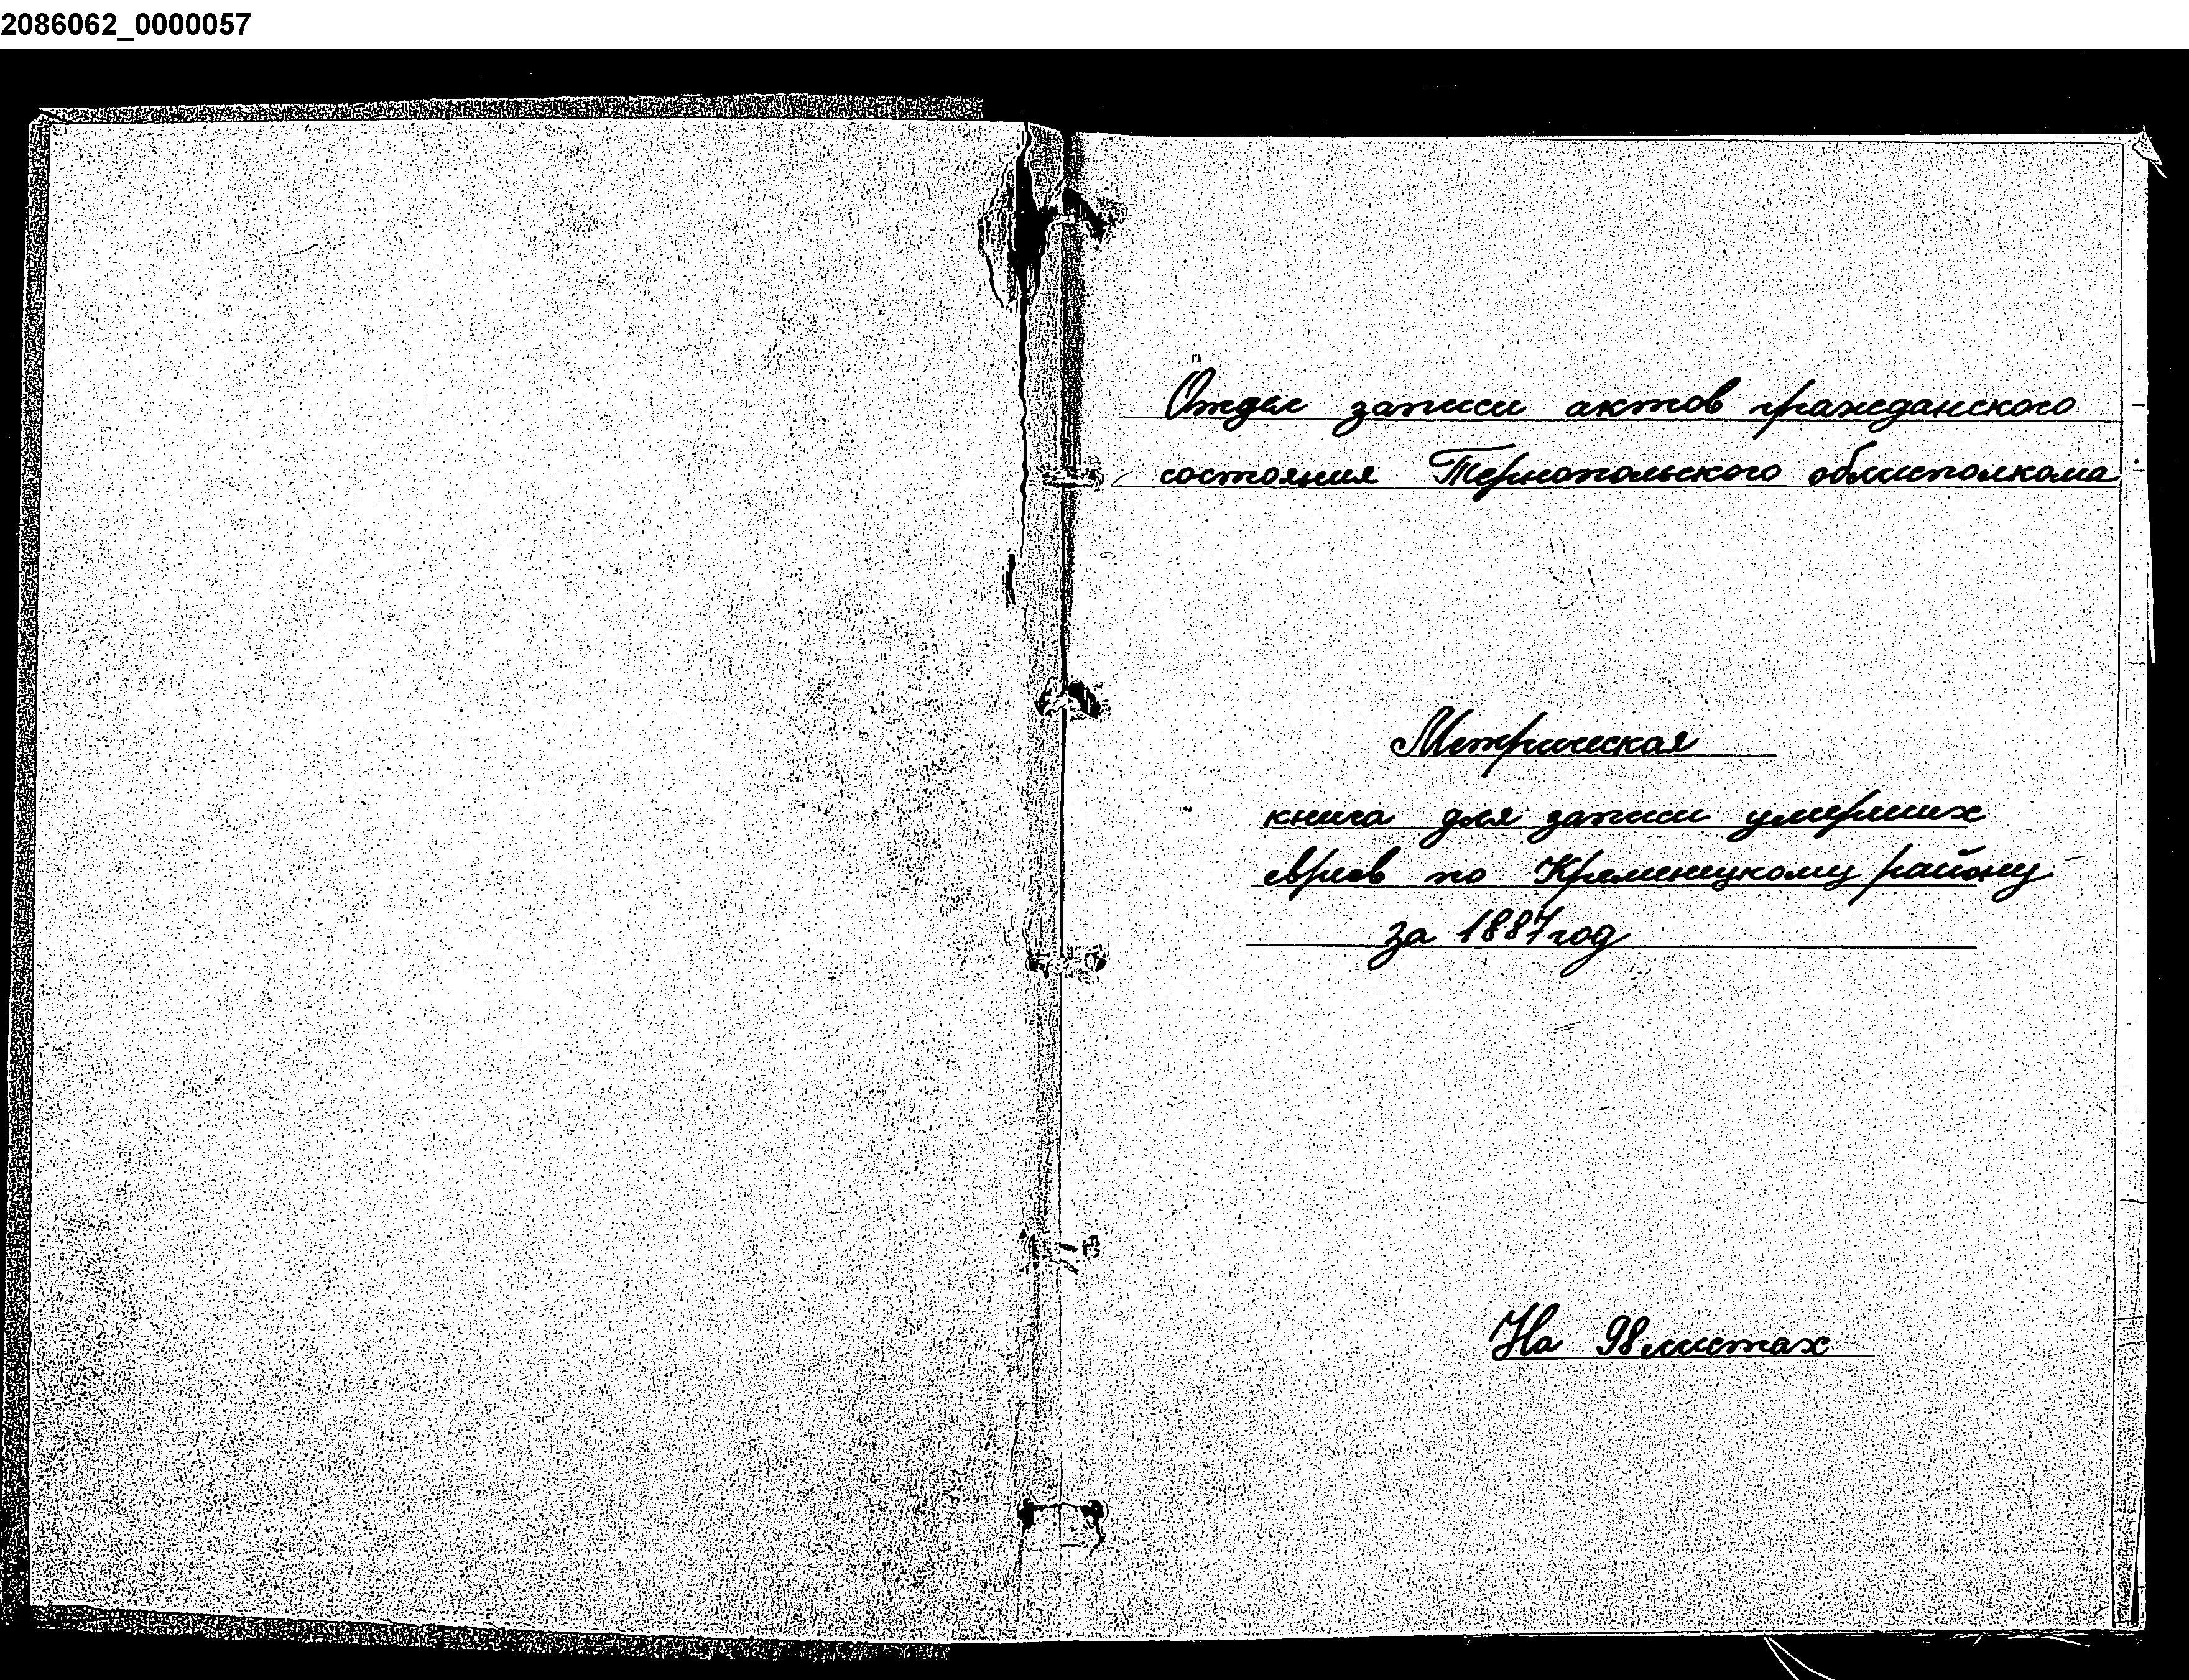 2086062_0000057
Отдел записи актов гражданского
состояния Тернопольского облисполкома
Метрическая
книга для записи умерших
евреев по Кременецкому району
за 1887 год
На 98 листах